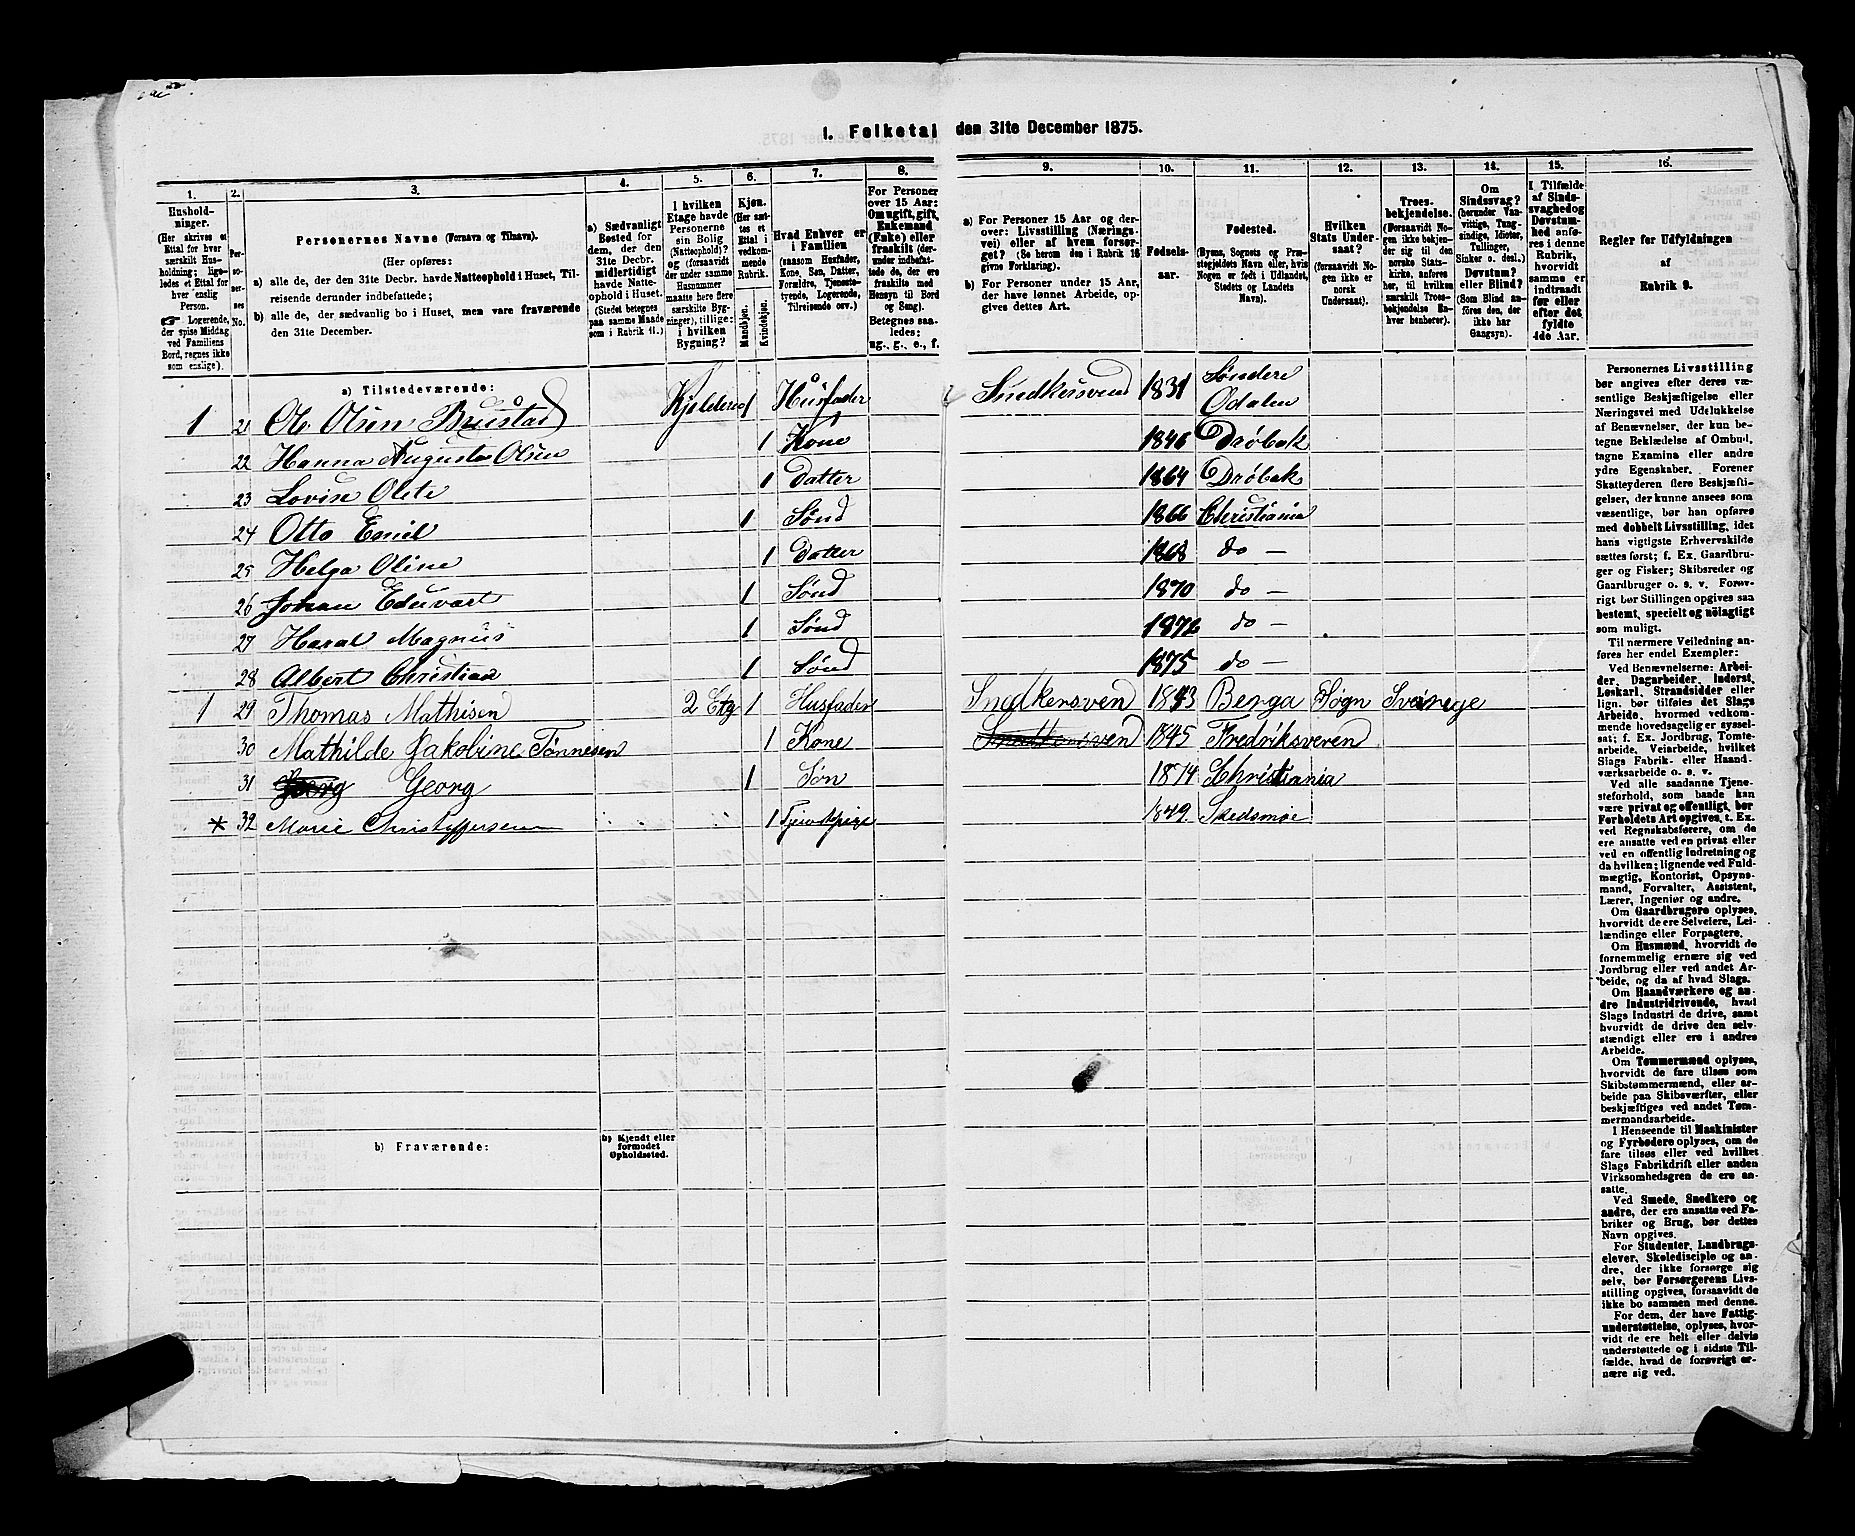 1. Folketal den 31te December 1875.
1. 2. 3. 4. 5. 6. 7. 8. 9. 10. 11. 12. 13. 14. 15. 16.
Hushold-
ninger.
(Her skrives et
Ettal for hver
særskilt Hus-
holdning; lige-
ledes et Ettal for
hver enslig
Person.
☞ Logerende,
der spise Middag
ved Familiens
Bord, regnes ikke
som enslige).
Per-
so-
ner-
nes
No.
Personernes Navne (Fornavn og Tilnavn).
(Her opføres:
a) alle de, der den 31te Decbr. havde Natteophold i Huset, Til-
reisende derunder indbefattede;
b) alle de, der sædvanlig bo i Huset, men vare fraværende
den 31te December.
a) Sædvanligt
Bosted for
dem, der den
31te Decbr.
midlertidigt
havde Natte-
ophold i Huset.
(Stedet betegnes
paa samme Maade
som i Rubrik 11.)
I hvilken
Etage havde
Personerne
sin Bolig
(Natteophold)?
og (forsaavidt
der under samme
Husnummer
maatte høre flere
særskilte Byg-
ninger), tillige:
i hvilken
Bygning?
Kjøn.
(Her sæt-
tes et
Ettal i
vedkom-
mende
Rubrik.
Mandkjøn.
Kvindekjøn.
Hvad Enhver er
i Familien
(saasom Husfader,
Kone, Søn, Datter,
Forældre, Tjeneste-
tyende, Logerende,
Tilreisende osv.)
For Personer
over 15 Aar:
Om ugift, gift,
Enkemand
(Enke) eller
fraskilt (der-
under indbefat-
tede de, der ere
fraskilte med
Hensyn til Bord
og Seng).
Betegnes saa-
ledes:
ug., g., e., f.
a) For Personer 15 Aar og der-
over: Livsstilling (Nærings-
vei) eller af hvem forsør-
get? (Se herom den i Rubrik 16
givne Forklaring).
b) For Personer under 15 Aar,
der have lønnet Arbeide, op-
gives dettes Art.
Fødsels-
aar.
Fødested.
(Byens, Sognets og Præ-
stegjeldets Navn eller, hvis
Nogen er født i Udlandet,
Stedets og Landets
Navn).
Hvilken
Stats Under-
saat?
(forsaavidt No-
gen ikke er
norsk
Undersaat).
Troes-
bekjendelse.
(Forsaavidt No-
gen ikke bekjen-
der sig til den
norske Stats-
kirke, anføres
her, til hvilken
særskilt Troes-
bekjendelse En-
hver henhører).
Om
Sindssvag?
(herunder Van-
vittige, Tung-
sindige, Idioter,
Tullinger,
Sinker o. desl.)
Døvstum?
eller Blind?
(Som Blind an-
føres den, der
ikke har
Gangsyn).
I Tilfælde
af Sinds-
svaghed og
Døvstum-
hed anfø-
res i denne
Rubrik,
hvorvidt
samme er
indtraadt
før eller
efter det
fyldte
4de Aar.
Regler for Udfyldningen
af
Rubrik 9.
a) Tilstedeværende:
1 21 Ole Olsen Kjelderen 1 Husfader Snedkersvend 1831 Søndere Odalen
22 Hanna Augusta Olsen 1 Kone 1846 Drøbak
23 Lovise Olete 1 Datter 1864 Drøbak
24 Otto Emil 1 Sønd 1866 Christiania
25 Helga Oline 1 Datter 1868 do —
26 Johan Eduvart 1 Sønd 1870 do —
27 Haral Magnus 1 Sønd 1872 do —
28 Albert Christian 1 Sønd 1875 do —
1 29 Thomas Mathisen 2 Etg 1 Husfader Snedkersven 1843 Berga Sogn Sverige
30 Mathilde Jakobine Tønnesen 1 Kone Snedkersven 1845 Fredriksveren
31 Georg Georg 1 Søn 1874 Christiania
* 32 Marie Christoffersen 1 Tjenstpige 1849 Skedsmoe
b) Fraværende:
b) Kjendt eller
formodet
Opholdssted.
Personernes Livsstilling
bør angives efter deres væ-
sentlige Beskjæftigelse eller
Næringsvei med Udelukkelse
af Benævnelser, der kun be-
tegne Beklædelse af Ombud,
tagne Examina eller andre
ydre Egenskaber. Forener
Skatteyderen flere Beskjæfti-
gelser, der kunne ansees som
væsentlige, bør han opføres
med dobbelt Livsstilling, idet
hans vigtigste Erhvervskilde
sættes først; f. Ex. Gaardbru-
ger og Fisker; Skibsreder og
Gaardbruger o. s. v. Forøv-
rigt bør Stillingen opgives saa
bestemt, specielt og nöiagtigt
som muligt.
Til nærmere Veiledning an-
føres her endel Exempler:
Ved Benævnelserne: Arbei-
der, Dagarbeider, Inderst,
Løskarl, Strandsidder eller
lign. bør tilføies det Slags
Arbeide, hvormed vedkom-
mende hovedsagelig er syssel-
sat; f. Ex. Jordbrug, Tomte-
arbeide, Veiarbeide, hvilket
Slags Fabrik- eller Haand-
værksarbeide o. s. v.
Ved alle saadanne Tjene-
steforhold, som baade kan
være privat og offentligt, bør
Forholdets Art opgives, t. Ex.
ved Regnskabsførere, om de
ere ansatte ved en privat eller
ved en offentlig Indretning og
da hvilken; lignende ved Fuld-
mægtig, Kontorist, Opsyns-
mand, Forvalter, Assistent,
Lærer, Ingeniør og andre.
Om Gaardbrugere oplyses,
hvorvidt de ere Selveiere, Lei-
lændinge eller Forpagtere.
Om Husmænd, hvorvidt de
fornemmelig ernære sig ved
Jordbrug eller ved andet Ar-
beide, og da af hvad Slags.
Om Haandværkere og an-
dre Industridrivende, hvad
Slags Industri de drive, samt
hvorvidt de drive den selv-
stændigt eller ere i andres
Arbeide.
Om Tømmermænd oplyses,
hvorvidt de fare tilsøs som
Skibstømmermænd, eller ar-
beide paa Skibsværfter, eller
beskjæftiges ved andet Tøm-
mermandsarbeide.
I Henseende til Maskinister
og Fyrbødere oplyses, om de
fare tilsøs eller ved hvilket
Slags Fabrikdrift eller anden
Virksomhedsgren de ere an-
satte.
Ved Smede, Snedkere og
andre, der ere ansatte ved Fa-
briker og Brug, bør dettes
Navn opgives.
For Studenter, Landbrugs-
elever, Skoledisciple og an-
dre, der ikke forsørge sig
selv, bør Forsørgerens Livs-
stilling opgives, forsaavidt de
ikke bo sammen med denne.
For dem, der have Fattig-
understøttelse, oplyses, hvor-
vidt de ere helt eller delvis
understøttede og i sidste Til-
fælde, hvad de forøvrigt er-
nære sig ved.